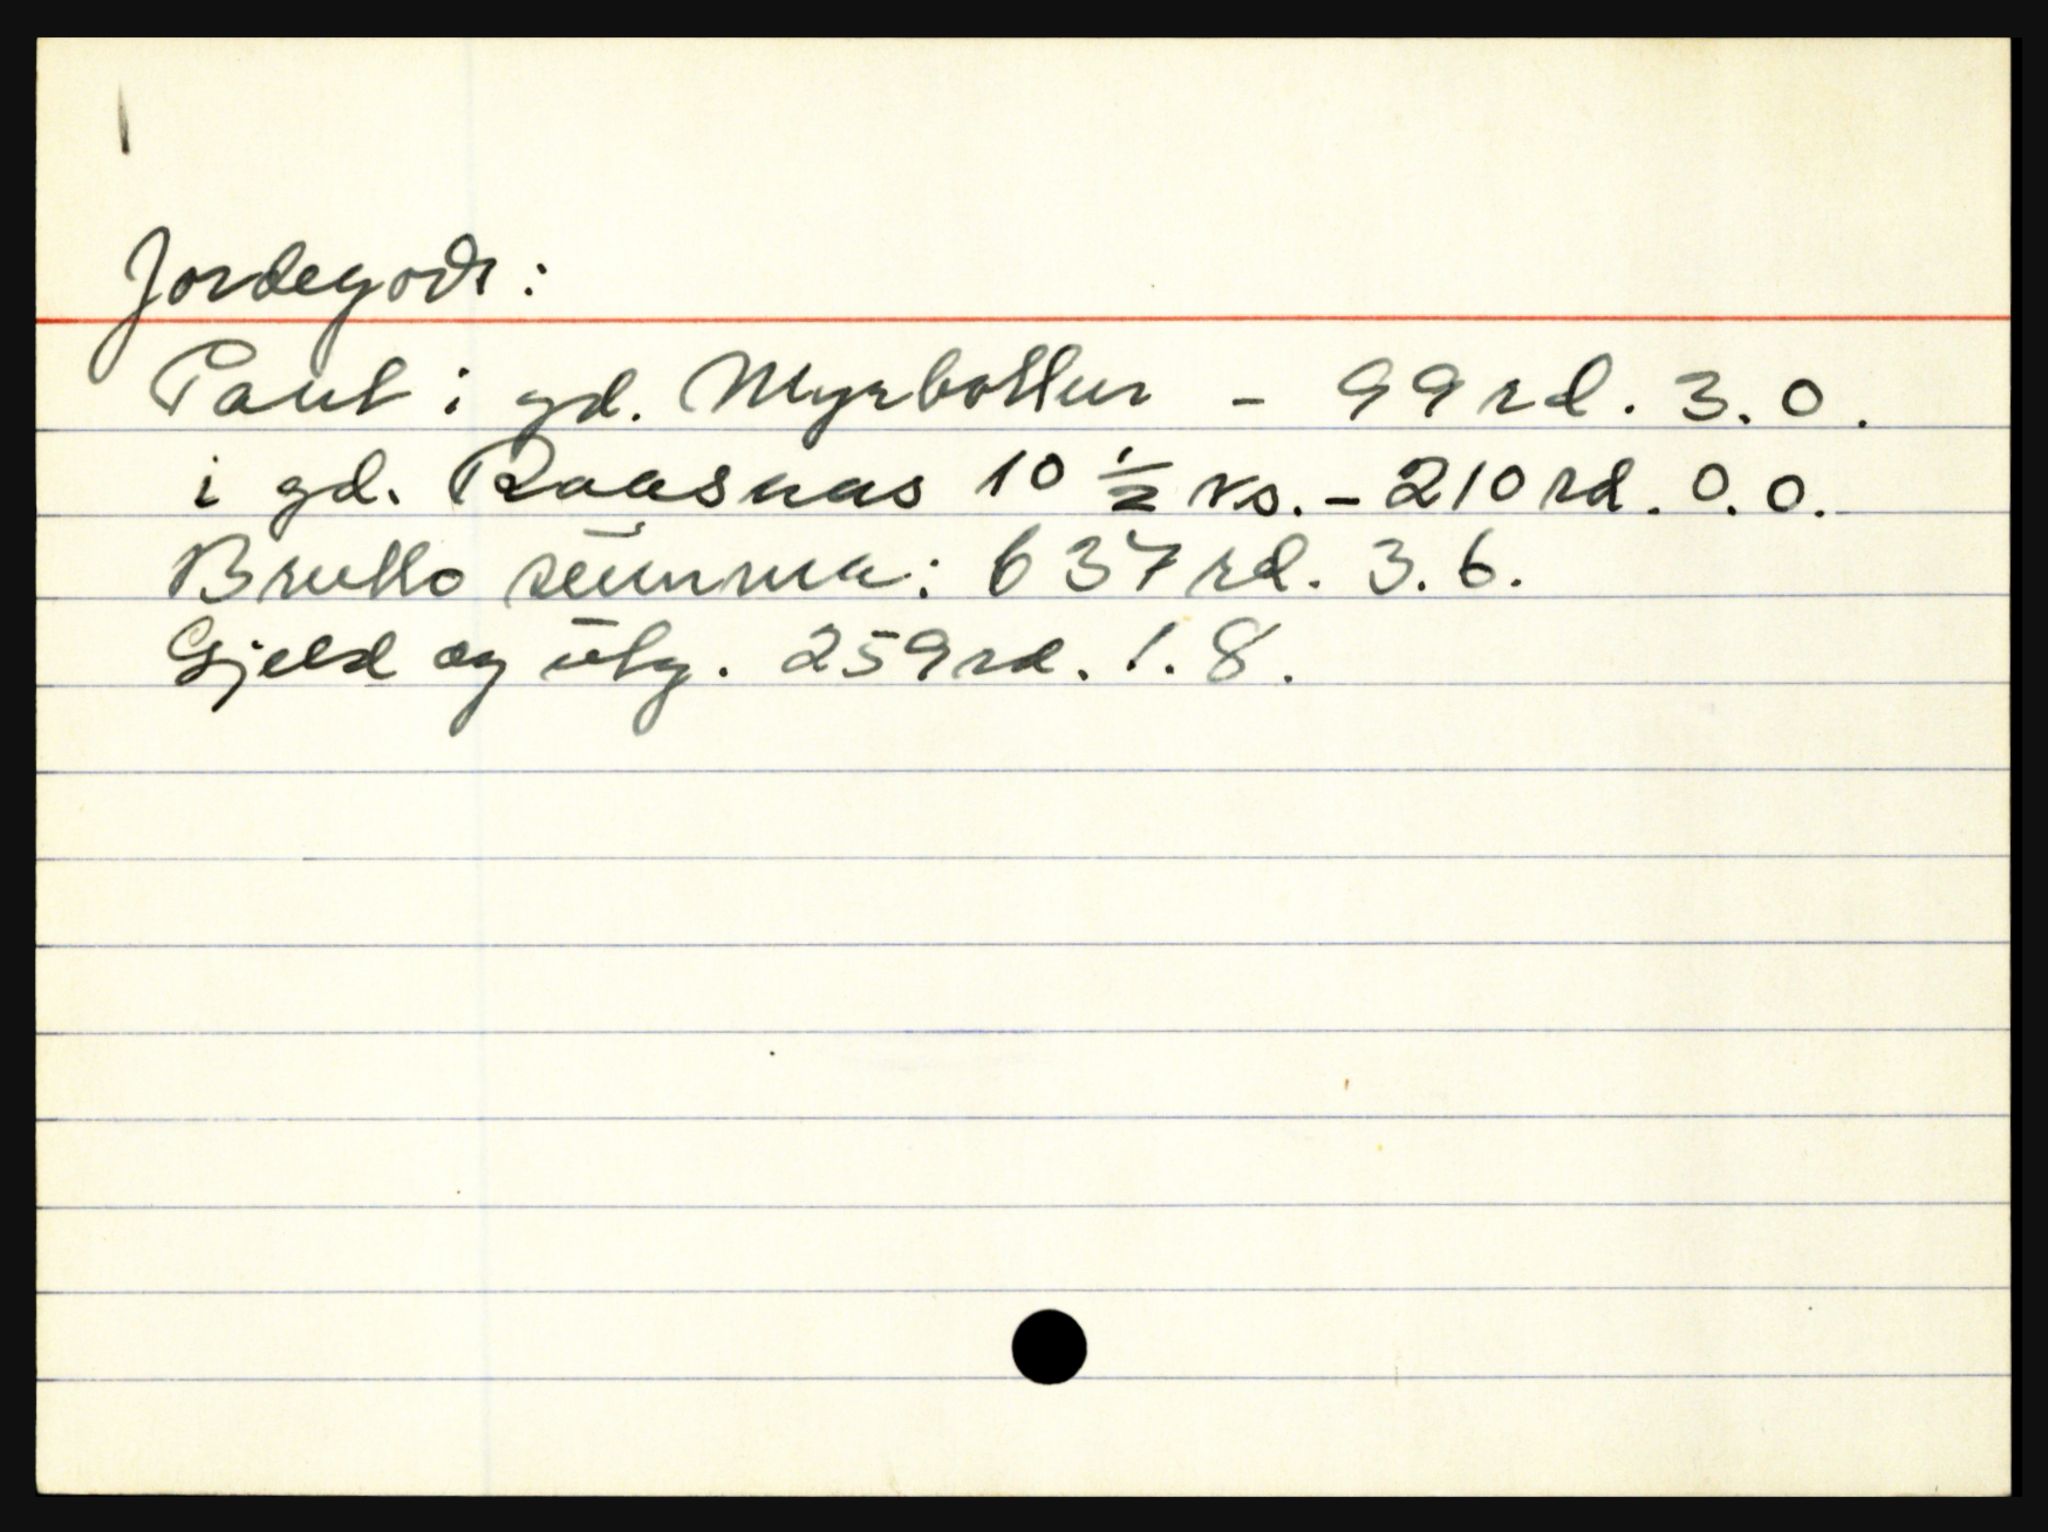 Jordegods:
Pant i gd. Myrbotten - 99 rd. 3. 0.
i gd. Raasnas 10 1/2 rs. - 210 rd. 0. 0.
Brutto summa: 637 rd. 3. 6.
Gjeld og utg. 259 rd. 1. 8.